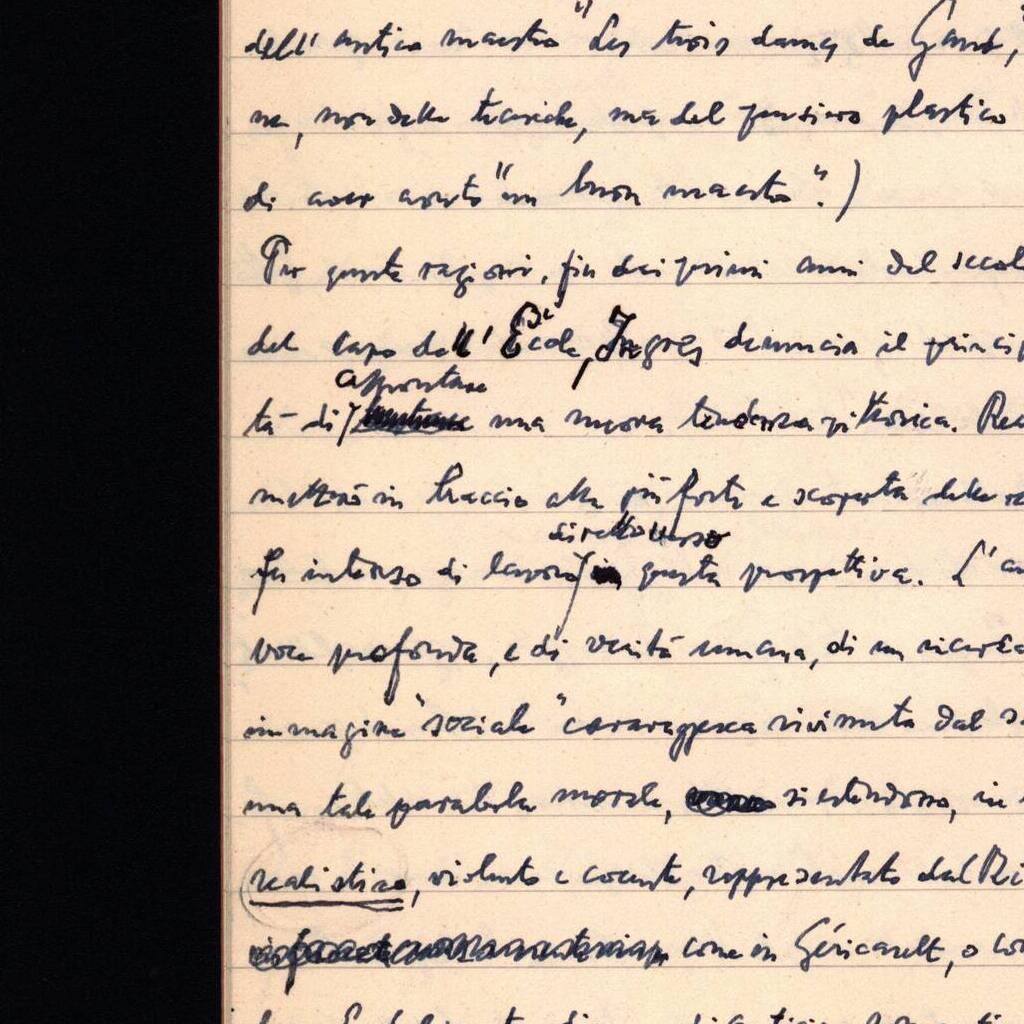 dell'antico maestro "Les trois dames de Gand,
ne, non delle tecniche, ma del pensiero plastico
di aver avuto "un buon maestro".)
Per queste ragioni, fin dai primi anni del secol
del capo dell'École, Ingres denuncia il princip
affrontare
tà di una nuova tendenza pittorica. Rea
metterà in traccia alla più forte e scoperta delle
diretto verso
fu intenso di lavoro questa prospettiva. L'
voce profonda, e di verità umana, di un
immagine "sociale" caravaggesca rivissuta dal
una tale parabola morale, si estendono, in
realistico, violento e cocente, rappresentato dal Ri
come in Géricault, o co